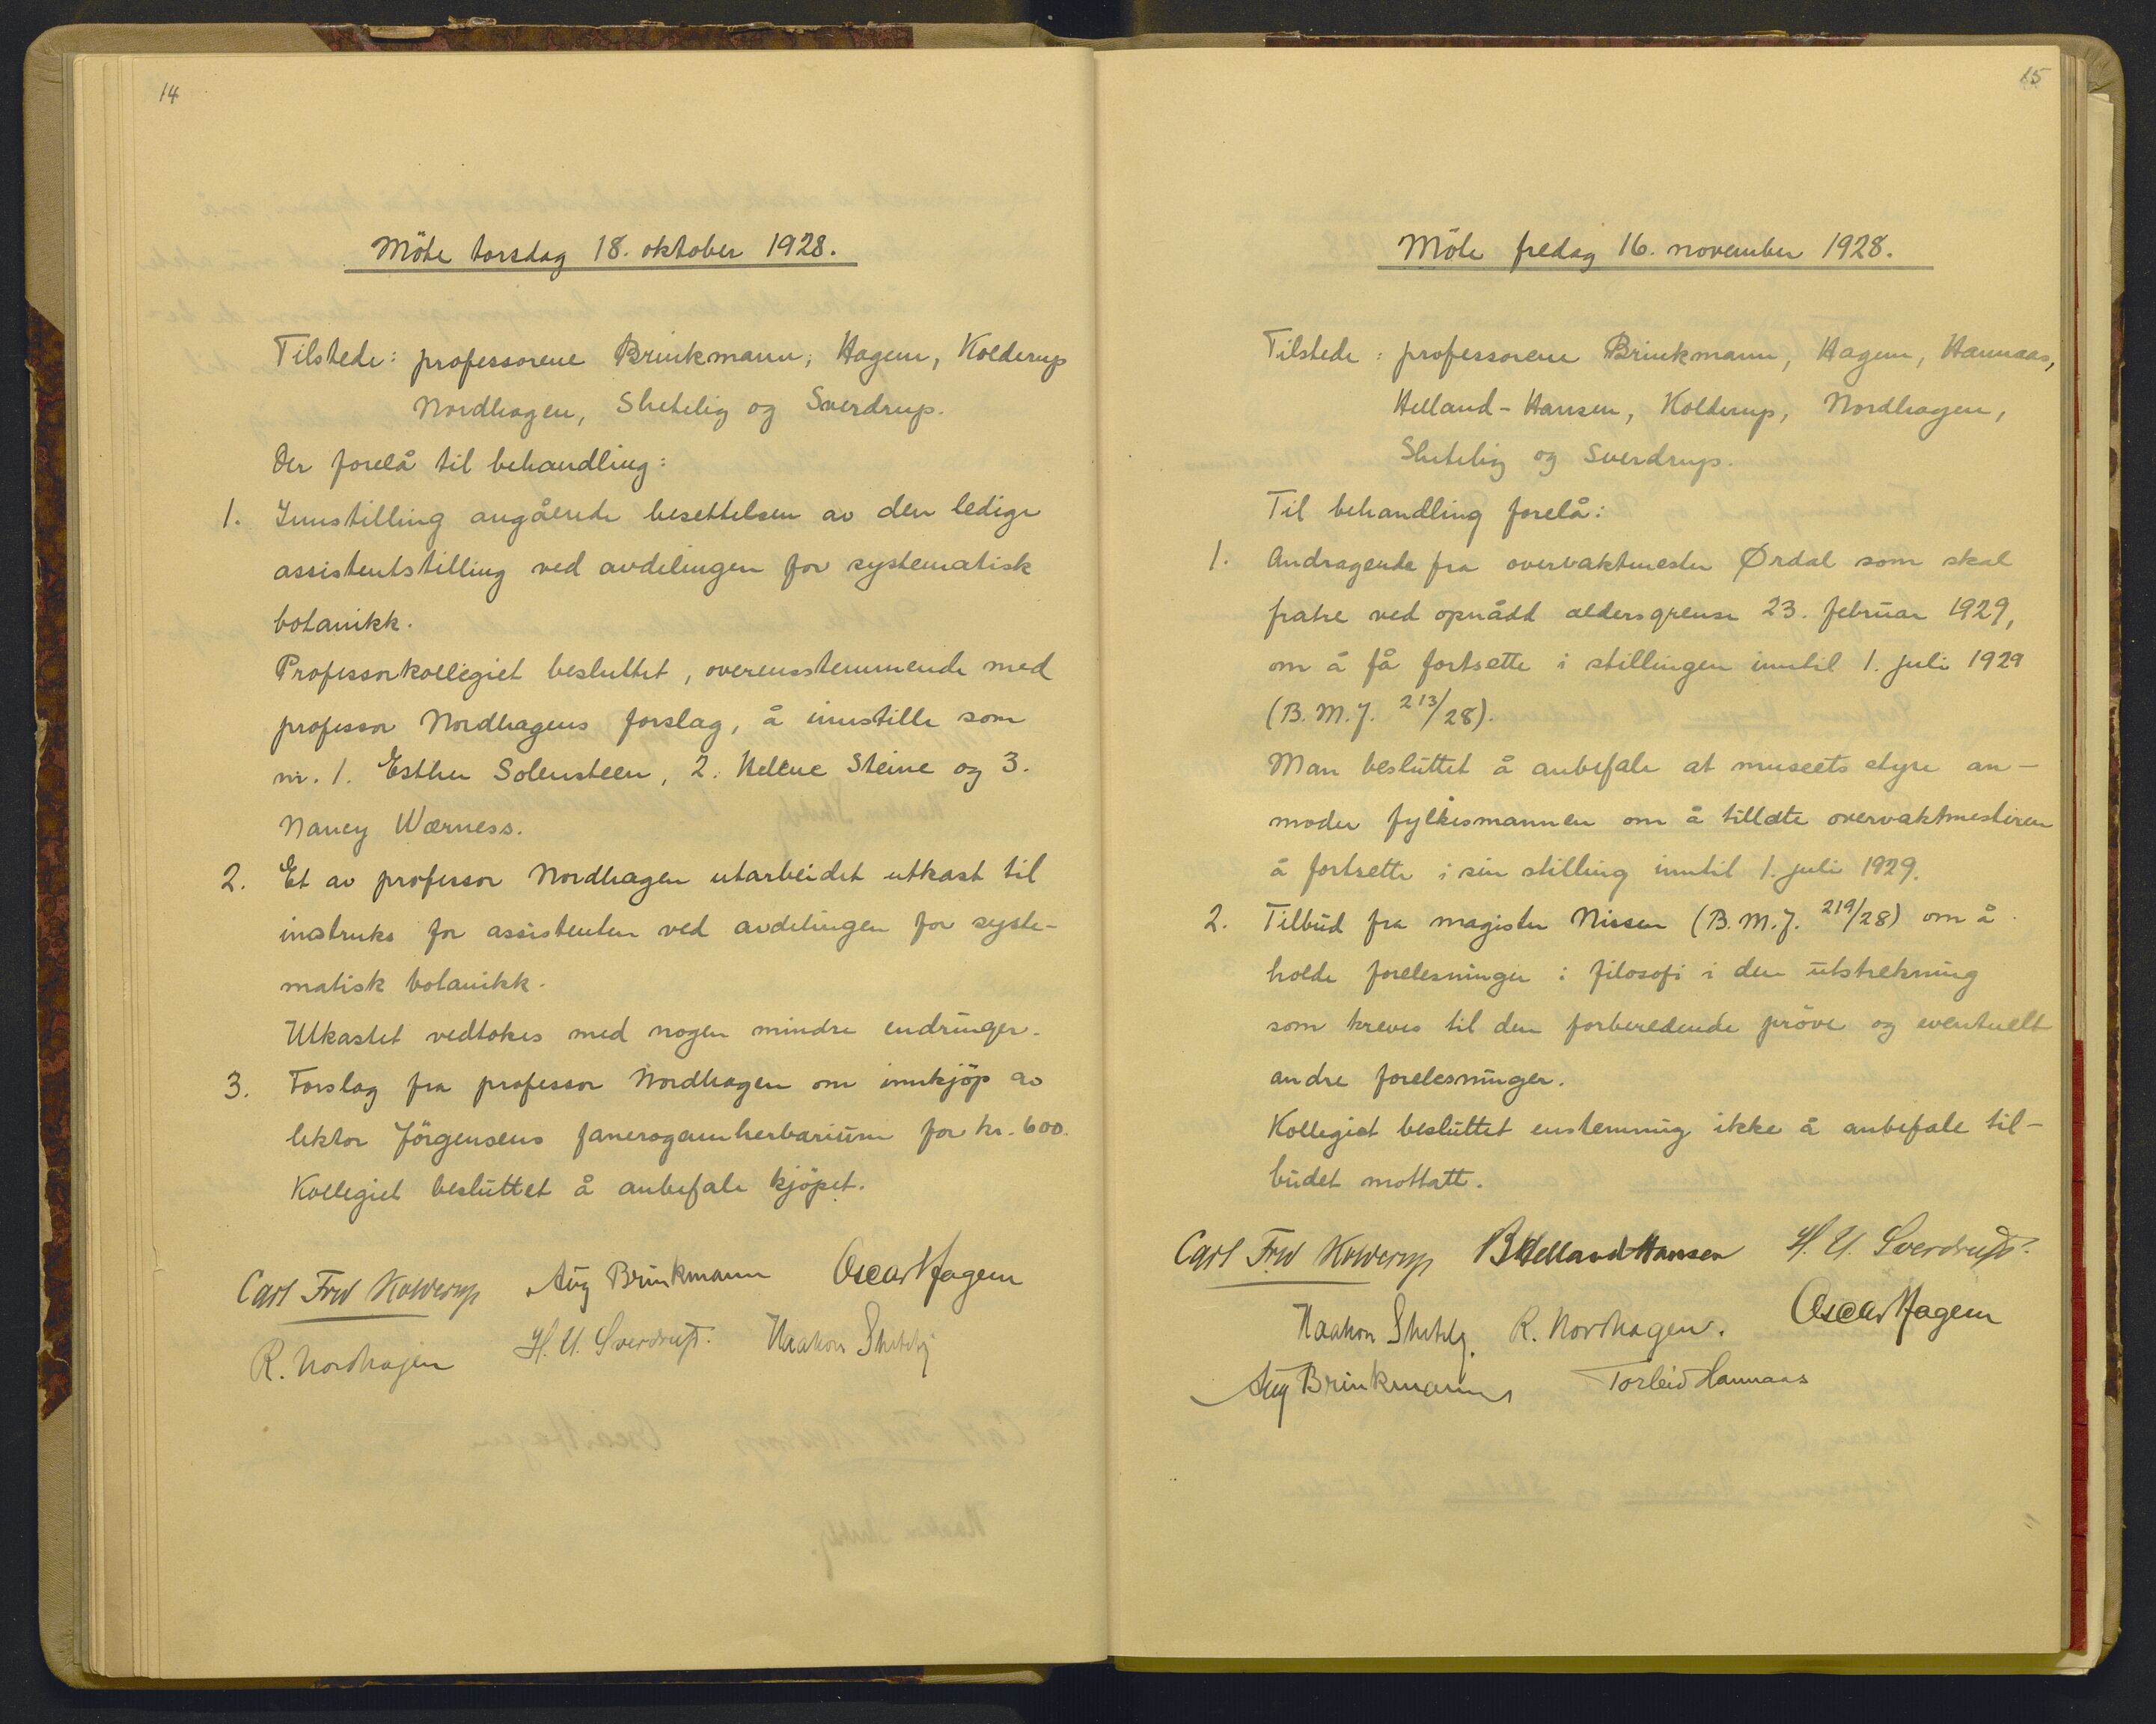 14
Möte torsdag 18. oktober 1928.
Tilstede: professorene Brinkmann, Hagem, Kolderup
Nordhagen, Shetelig og Sverdrup.
Der forelå til behandling:
1. Innstilling angående besettelsen av den ledige
assistentstilling ved avdelingen for systematisk
botanikk.
Professorkollegiet besluttet, overensstemmende med
professor Nordhagens forslag, å innstille som
nr. 1. Esther Solensteen, 2. Hellene Steine og 3.
Nancy Wærness.
2. Et av professor Nordhagen utarbeidet utkast til
instruks for assistenten ved avdelingen for syste-
matisk botanikk.
Utkastet vedtokes med nogen mindre endringer.
3. Forslag fra professor Nordhagen om innkjöp av
lektor Jörgensens fanerogamherbarium for kr. 600.
Kollegiet besluttet å anbefale kjöpet.
Carl Fred Kolderup Aug Brinkmann Oscar Hagem
R. Nordhagen H. U. Sverdrup. Haakon Shetelig
15
Möte fredag 16. november 1928.
Tilstede: professorene Brinkmann, Hagem, Hannaas,
Helland-Hansen, Kolderup, Nordhagen,
Shetelig og Sverdrup.
Til behandling forelå:
1. Andragende fra overvaktmester Ørdal som skal
fratre ved opnådd aldersgrense 23. februar 1929,
om å få fortsette i stillingen inntil 1. juli 1929
(B. M. J. 213/28).
Man besluttet å anbefale at museets styre an-
moder fylkesmannen om å tillate overvaktmesteren
å fortsette i sin stilling inntil 1. juli 1929.
2. Tilbud fra magister Nissen (B. M. J. 219/28) om å
holde forelesninger i filosofi i den utstrekning
som kreves til den forberedende pröve og eventuelt
andre forelesninger.
Kollegiet besluttet enstemmig ikke å anbefale til-
budet mottatt.
Carl Fred Kolderup B Helland Hansen H. U. Sverdrup.
Haakon Shetelig. R. Nordhagen. Oscar Hagem
Aug Brinkmann Torleiv Hannaas